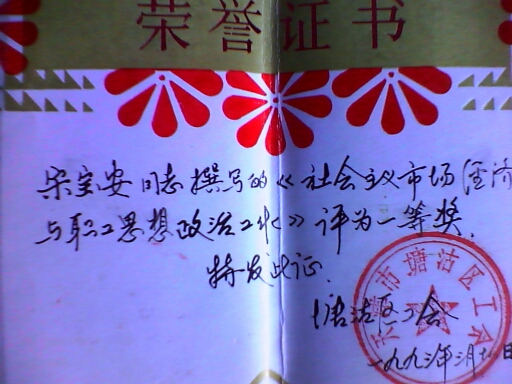 荣誉证书
宋宝安同志撰写的《社会主义市场经济
与职工思想政治工作》评为一等奖.
特发此证.
塘沽区工会
天津市塘沽区工会
一九九三年三月